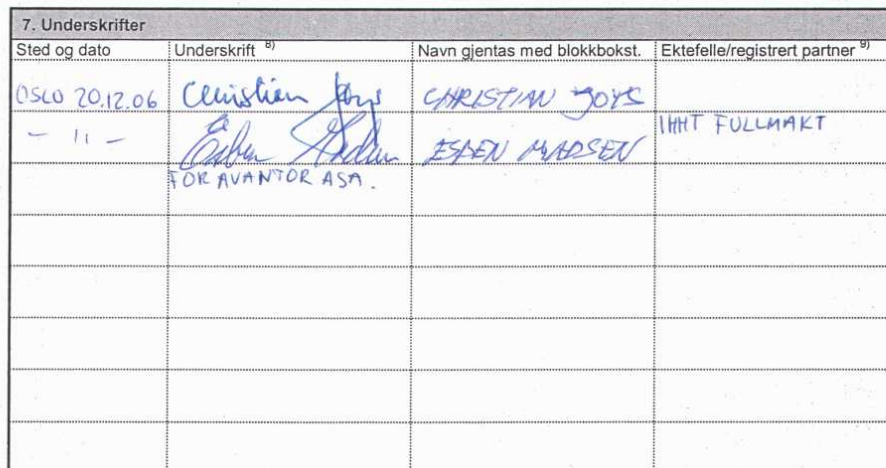 7. Underskrifter
Sted og dato Underskrift 8) Navn gjentas med blokkbokst. Ektefelle/registrert partner 9)
OSLO 20.12.06 Christian Joys CHRISTIAN JOYS
— 11 — Esben Madsen ESBEN MADSEN IHHT FULLMAKT
FOR AVANTOR ASA.